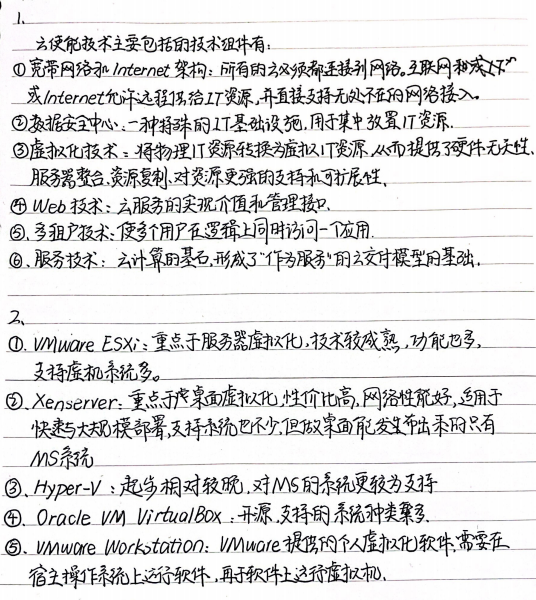 1.
云使能技术主要包括的技术组件有:
①宽带网络和Internet架构:所有的云必须都连接到网络。互联网
或Internet允许远程供给IT资源,并直接支持无处不在的网络接入。
②数据安全中心:一种特殊的IT基础设施,用于集中放置IT资源.
③虚拟化技术:将物理IT资源转换为虚拟IT资源,从而提供了硬件无关性.
服务器整合.资源复制.对资源更强的支持和可扩展性.
④Web技术:云服务的实现介值和管理接口.
⑤.多租户技术:使多个用户在逻辑上同时访问一个应用.
⑥.服务技术:云计算的基石,形成了"作为服务"的云交付模型的基础.
2、
①.VMware ESXi:重点于服务器虚拟化,技术较成熟,功能也多,
支持虚机系统多。
②.Xenserver:重点于桌面虚拟化,性价比高,网络性能好,适用于
快速与大规模部署,支持系统也不少,但做桌面能发布出来的只有
MS系统
③.Hyper-V:起步相对较晚,对MS的系统更较为支持
④.Oracle VM VirtualBox:开源,支持的系统种类繁多.
⑤.VMware Workstation:VMware提供的个人虚拟化软件,需要在
宿主操作系统上运行软件,再于软件上运行虚拟机.